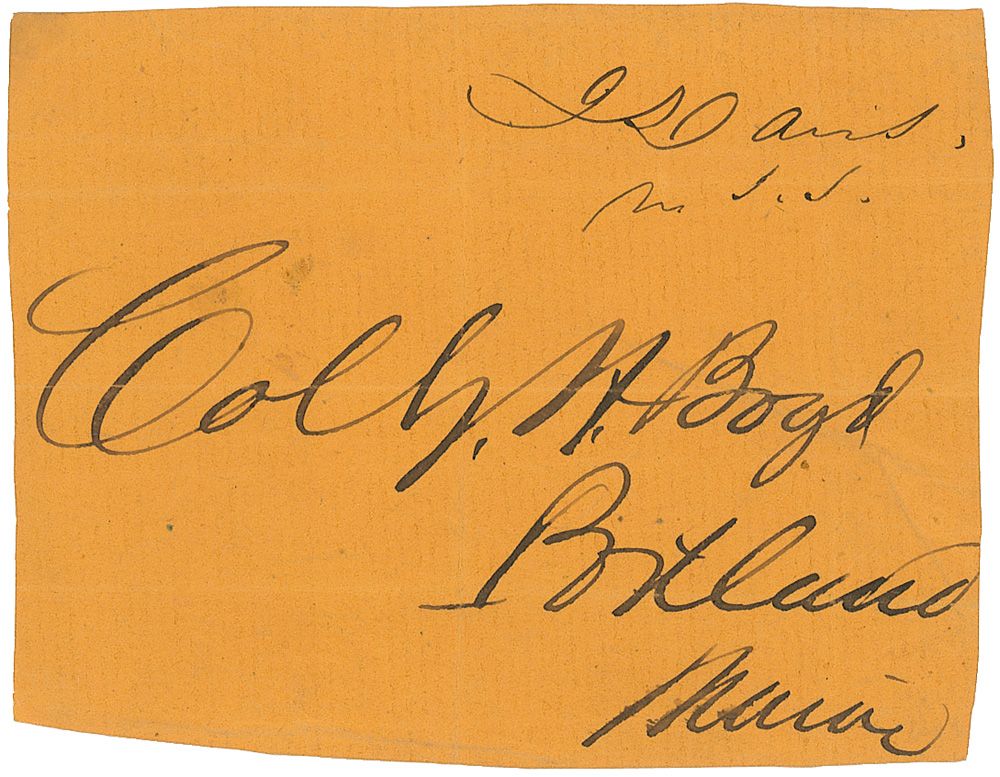 J Davis.
U. S. S.
Col G. H. Boyd
Portland
Maine